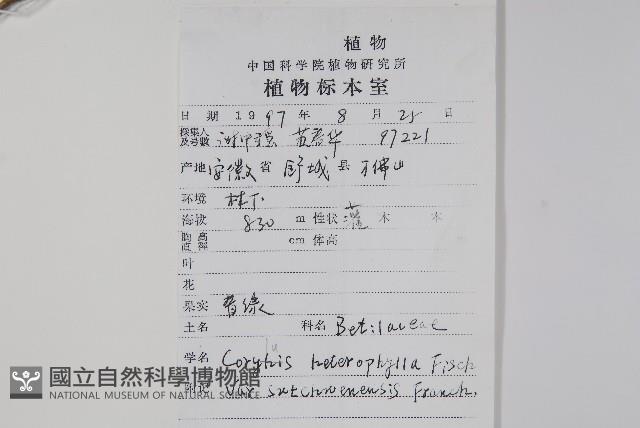 植物
中国科学院植物研究所
植物标本室
日期 1997 年 8 月 25 日
採集人及号數 黄春华 97221
产地 安徽 省 舒城 县 万佛山
环境 林下
海拔 830 m 性狀 灌 木 本
胸高直徑 cm 体高
叶
花
果实 青绿
土名 科名 Betulaceae
学名 Corylus heterophylla Fisch
附记 Var. sutchuenensis Franch.
國立自然科學博物館
NATIONAL MUSEUM OF NATURAL SCIENCE